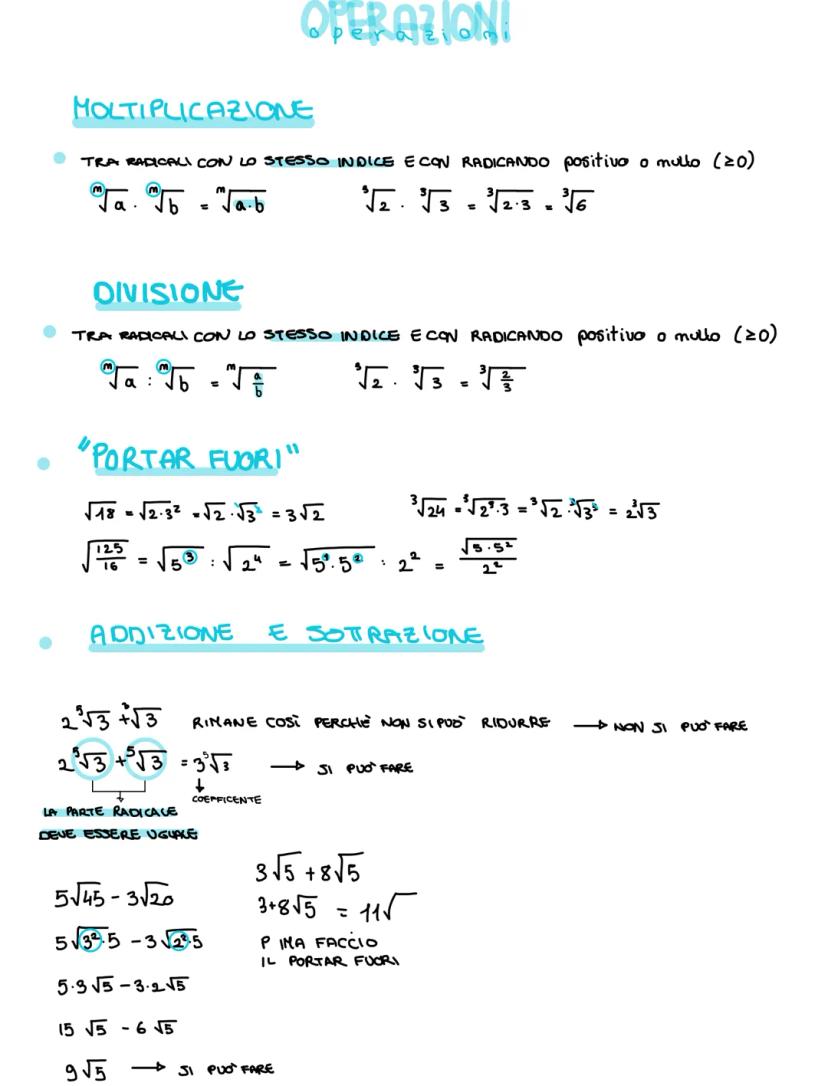 OPERAZIONI
operazioni
MOLTIPLICAZIONE
TRA RADICALI CON LO STESSO INDICE E CON RADICANDO positivo o nullo (≥0)
ᵐ√a · ᵐ√b = ᵐ√a·b ³√2 · ³√3 = ³√2·3 = ³√6
DIVISIONE
TRA RADICALI CON LO STESSO INDICE E CON RADICANDO positivo o nullo (≥0)
ᵐ√a : ᵐ√b = ᵐ√a/b ³√2 · ³√3 = ³√2/3
"PORTAR FUORI"
√18 = √2·3² = √2 · √3² = 3√2 ³√24 = ³√2³·3 = ³√2 · ³√3³ = 2³√3
√125/16 = √5³ : √2⁴ = √5¹·5² : 2² = √5·5²/2²
ADDIZIONE E SOTTRAZIONE
2⁵√3 + ³√3 RIMANE COSÌ PERCHÈ NON SI PUÒ RIDURRE → NON SI PUÒ FARE
2⁵√3 + ⁵√3 = 3⁵√3 → SI PUÒ FARE
COEFFICENTE
LA PARTE RADICALE
DEVE ESSERE UGUALE
3√5 + 8√5
5√45 - 3√20
3+8√5 = 11√
5√3²·5 - 3√2²·5
P IMA FACCIO
IL PORTAR FUORI
5·3√5 - 3·2√5
15 √5 - 6 √5
9√5 → SI PUÒ FARE